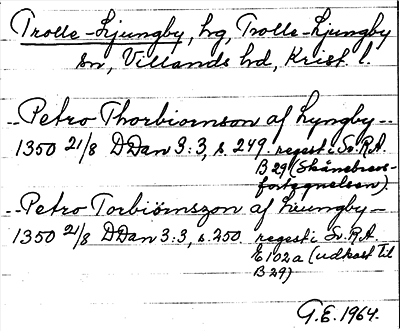 Trolle-Ljungby, hg, Trolle-Ljungby
sn, Villands hd, Krist. l.
--Petro Thorbiornson af Lyngby--
1350 21/8 DDan 3:3, s. 249. regest i Sv. R.A.
B 29 (Skånebrevs-
fortegnelsen).
--Petro Torbiörnszon af Liungby--
1350 21/8 DDan 3:3, s. 250. regest i Sv. R.A.
E 102a (udkast til
B 29)
G.E. 1964.